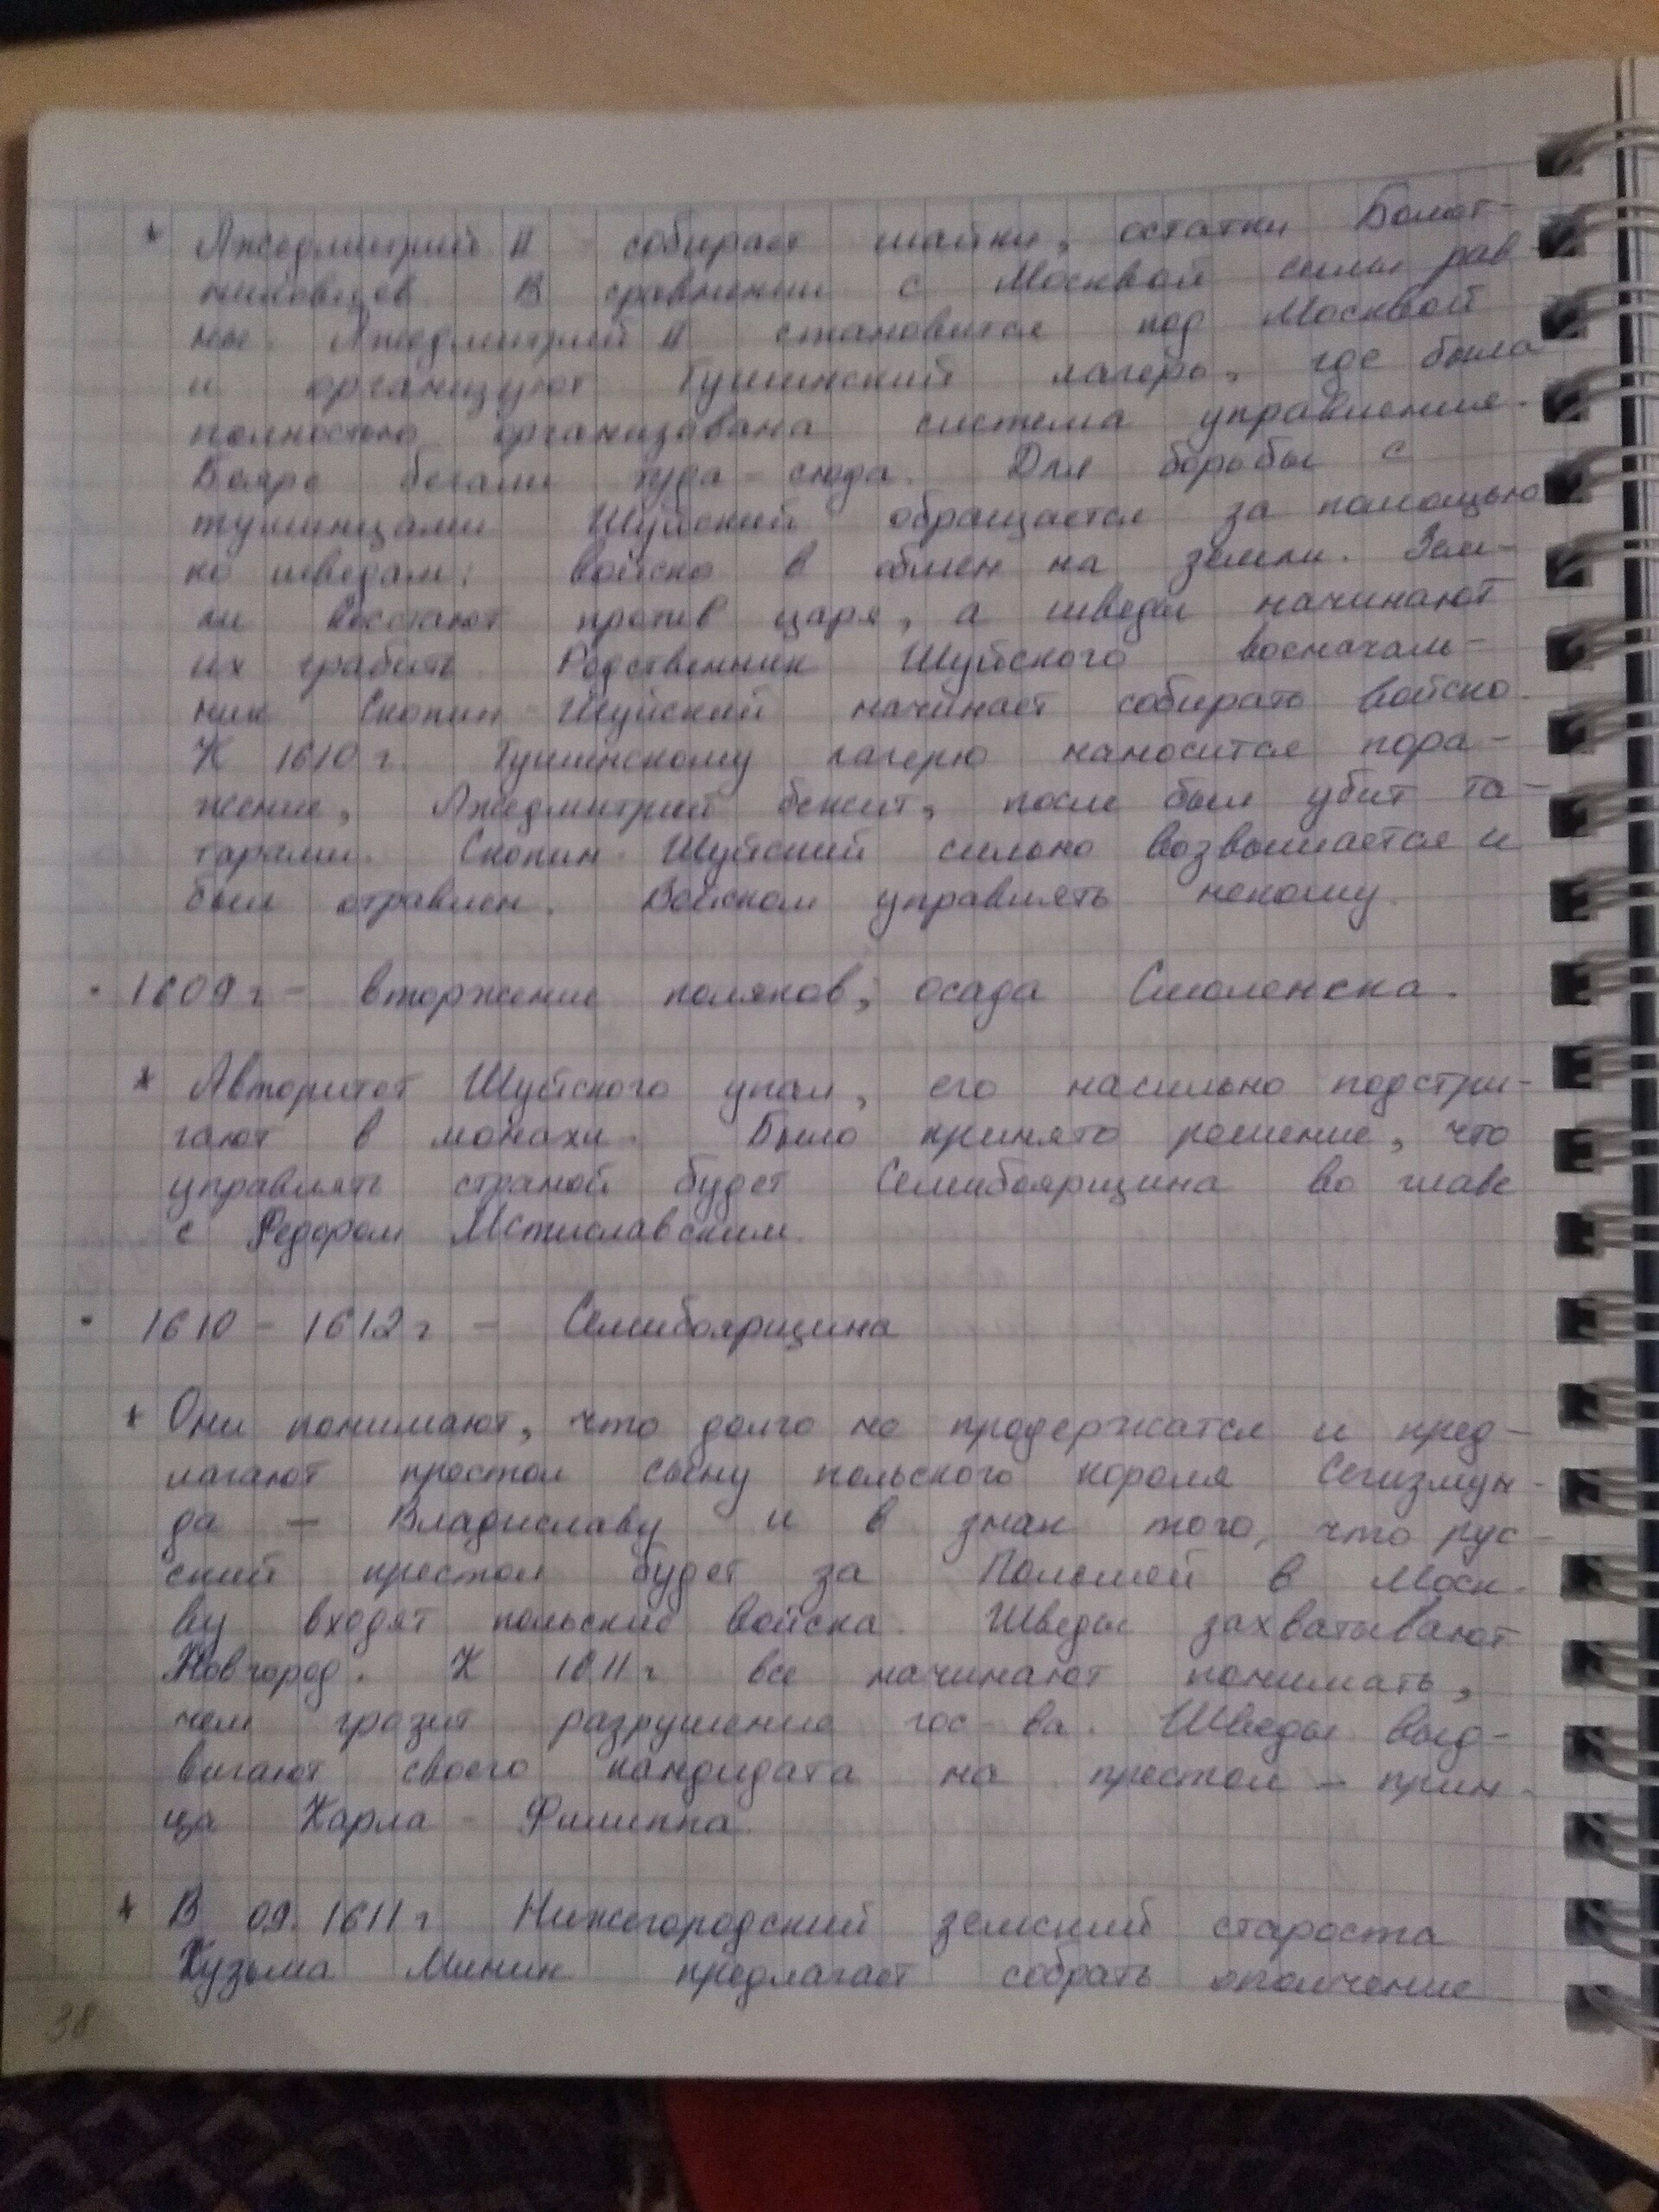 * Лжедмитрий II собирает шайки, остатки Болот-
никовцев. В сравнении с Москвой силы рав-
ны. Лжедмитрий II становится под Москвой
и организуют Тушинский лагерь, где была
полностью организована система управления.
Бояре бегали туда-сюда. Для борьбы с
тушинцами Шуйский обращается за помощью
ко шведам: войско в обмен на земли. Зем-
ли восстают против царя, а шведы начинают
их грабить. Родственник Шуйского военачаль-
ник Скопин-Шуйский начинает собирать войско.
К 1610 г. Тушинскому лагерю наносится пора-
жение, Лжедмитрий бежит, после был убит та-
тарами. Скопин-Шуйский сильно возвышается и
был отравлен. Войском управлять некому.
• 1609 г - вторжение поляков, осада Смоленска.
* Авторитет Шуйского упал, его насильно подстри-
гают в монахи. Было принято решение, что
управлять страной будет Семибоярщина во главе
с Федором Мстиславским.
• 1610 - 1612 г - Семибоярщина
* Они понимают, что долго не продержатся и пред-
лагают престол сыну польского короля Сигизмун-
да - Владиславу и в знак того, что рус-
ский престол будет за Польшей в Моск-
ву входят польские войска. Шведы захватывают
Новгород. К 1611 г все начинают понимать,
чем грозит разрушение гос-ва. Шведы выд-
вигают своего кандидата на престол - прин-
ца Карла-Филиппа.
* В 09. 1611 г Нижегородский земский староста
Кузьма Минин предлагает собрать ополчение
38